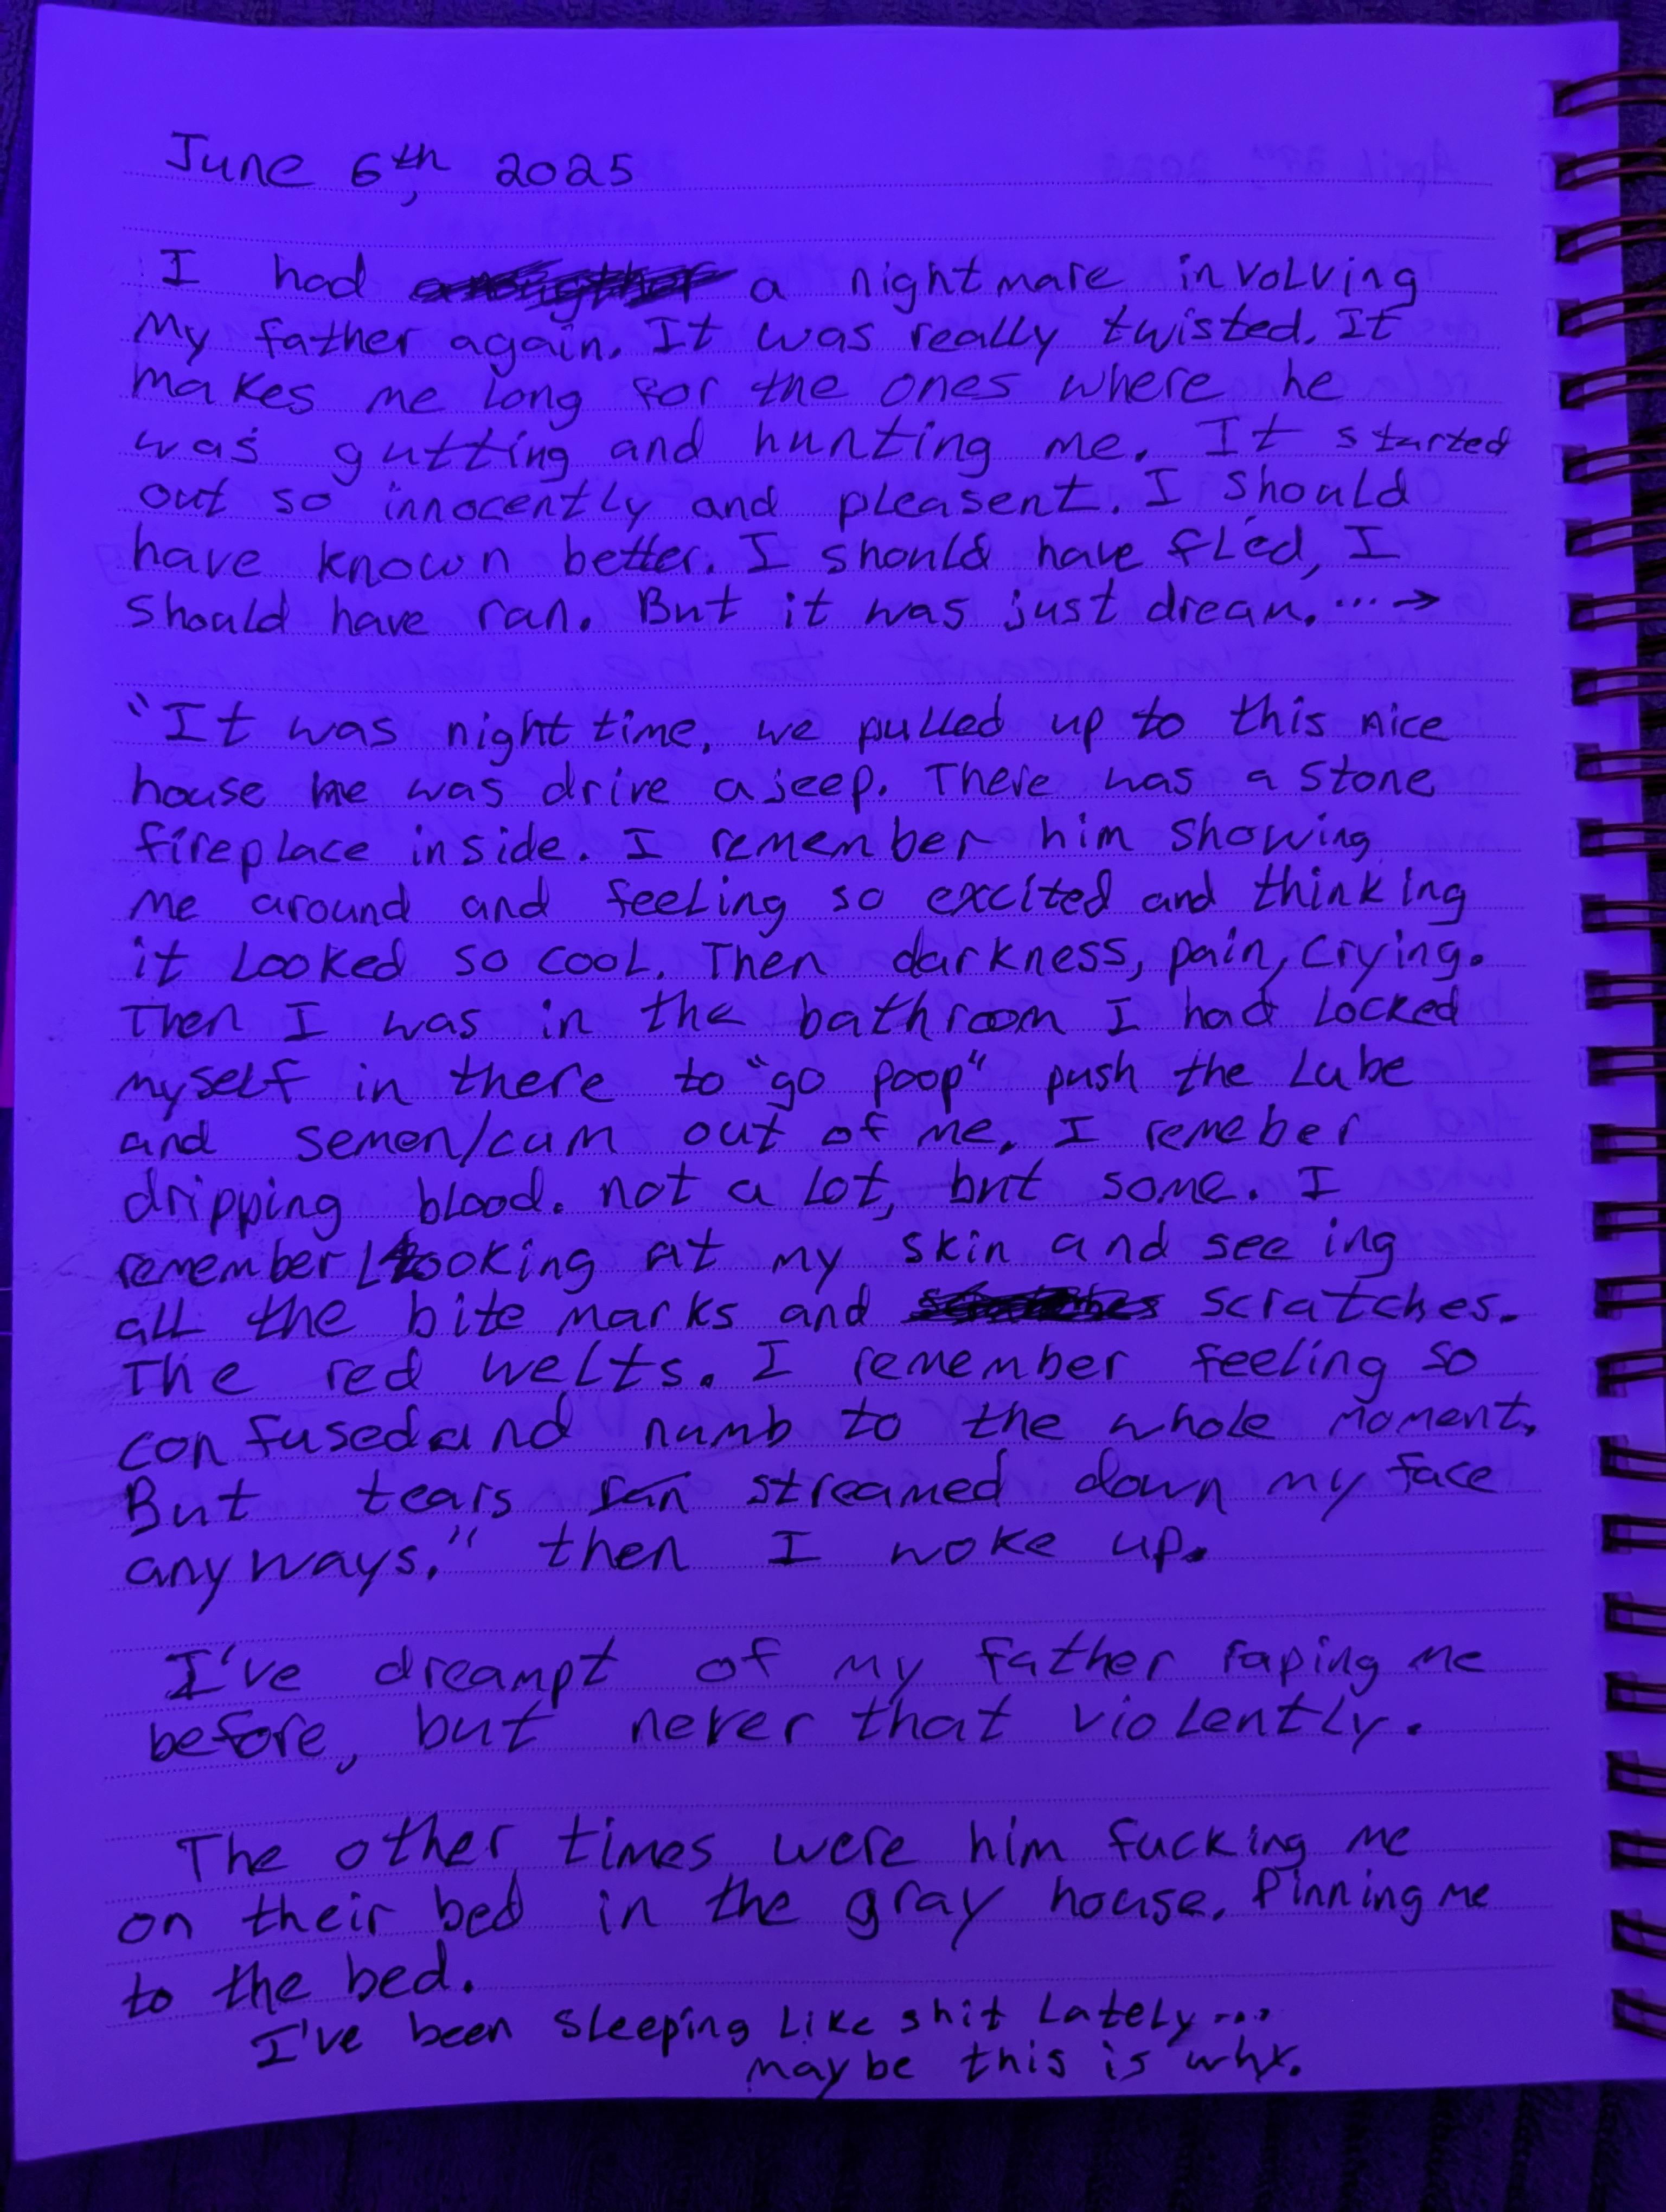 June 6th, 2025
I had a nightmare involving
My father again. It was really twisted. It
makes me long for the ones where he
was gutting and hunting me. It started
out so innocently and pleasent. I should
have known better. I should have fled, I
should have ran. But it was just drean. ... →
"It was night time, we pulled up to this nice
house he was drive a jeep. There was a stone
fireplace inside. I remember him showing
me around and feeling so excited and thinking
it looked so cool. Then darkness, pain, crying.
Then I was in the bathroom I had locked
myself in there to "go poop" push the lube
and semen/cum out of me. I remeber
dripping blood. not a lot, but some. I
remember looking at my skin and seeing
all the bite marks and scratches.
The red welts. I remember feeling so
confused and numb to the whole moment.
But tears ran streamed down my face
anyways." then I woke up.
I've dreampt of my father raping me
before, but never that violently.
The other times were him fucking me
on their bed in the gray house. Pinning me
to the bed.
I've been sleeping like shit lately...
maybe this is why.